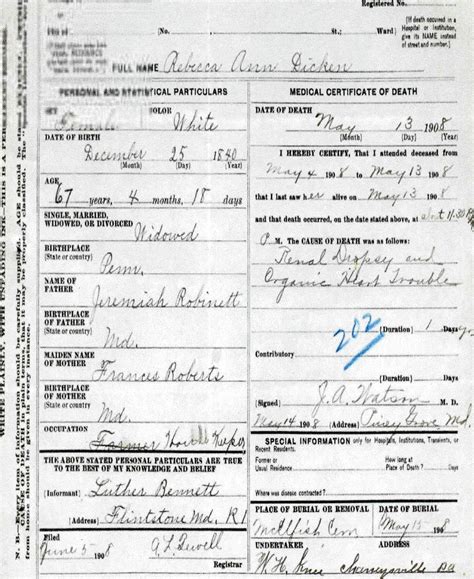 Registered No.
(No. St. Ward)
[If death occurred in a Hospital or Institution, give its NAME instead of street and number.]
FULL NAME Rebecca Ann Dicken
PERSONAL AND STATISTICAL PARTICULARS
COLOR
Female White
DATE OF BIRTH
December 25 1840
(Month) (Day) (Year)
AGE
67 years, 4 months, 18 days
SINGLE, MARRIED, WIDOWED, OR DIVORCED
Widowed
BIRTHPLACE (State or country)
Penn.
NAME OF FATHER
Jeremiah Robinett
BIRTHPLACE OF FATHER (State or country)
Md.
MAIDEN NAME OF MOTHER
Frances Roberts
BIRTHPLACE OF MOTHER (State or country)
Md.
OCCUPATION
Farmer House Keeper
THE ABOVE STATED PERSONAL PARTICULARS ARE TRUE
TO THE BEST OF MY KNOWLEDGE AND BELIEF
(Informant) Luther Bennett
(Address) Flintstone Md. R1
Filed
June 5 1908
Registrar
MEDICAL CERTIFICATE OF DEATH
DATE OF DEATH
May 13 1908
(Month) (Day) (Year)
I HEREBY CERTIFY, That I attended deceased from
May 4 1908 to May 13 1908
that I last saw her alive on May 13 1908
and that death occurred, on the date stated above, at 11:30
P. M. The CAUSE OF DEATH was as follows:
Renal Dropsy and
Organic Heart Trouble
202
(Duration) 1 Days
Contributory
(Duration)
(Signed) J.A. Watson M. D.
May 14 1908 (Address) Piney Grove Md
SPECIAL INFORMATION only for Hospitals, Institutions, Transients, or Recent Residents.
Former or Usual Residence
How long at Place of Death? Days
Where was disease contracted?
PLACE OF BURIAL OR REMOVAL DATE OF BURIAL
McElfish Cem May 15 1908
UNDERTAKER Address